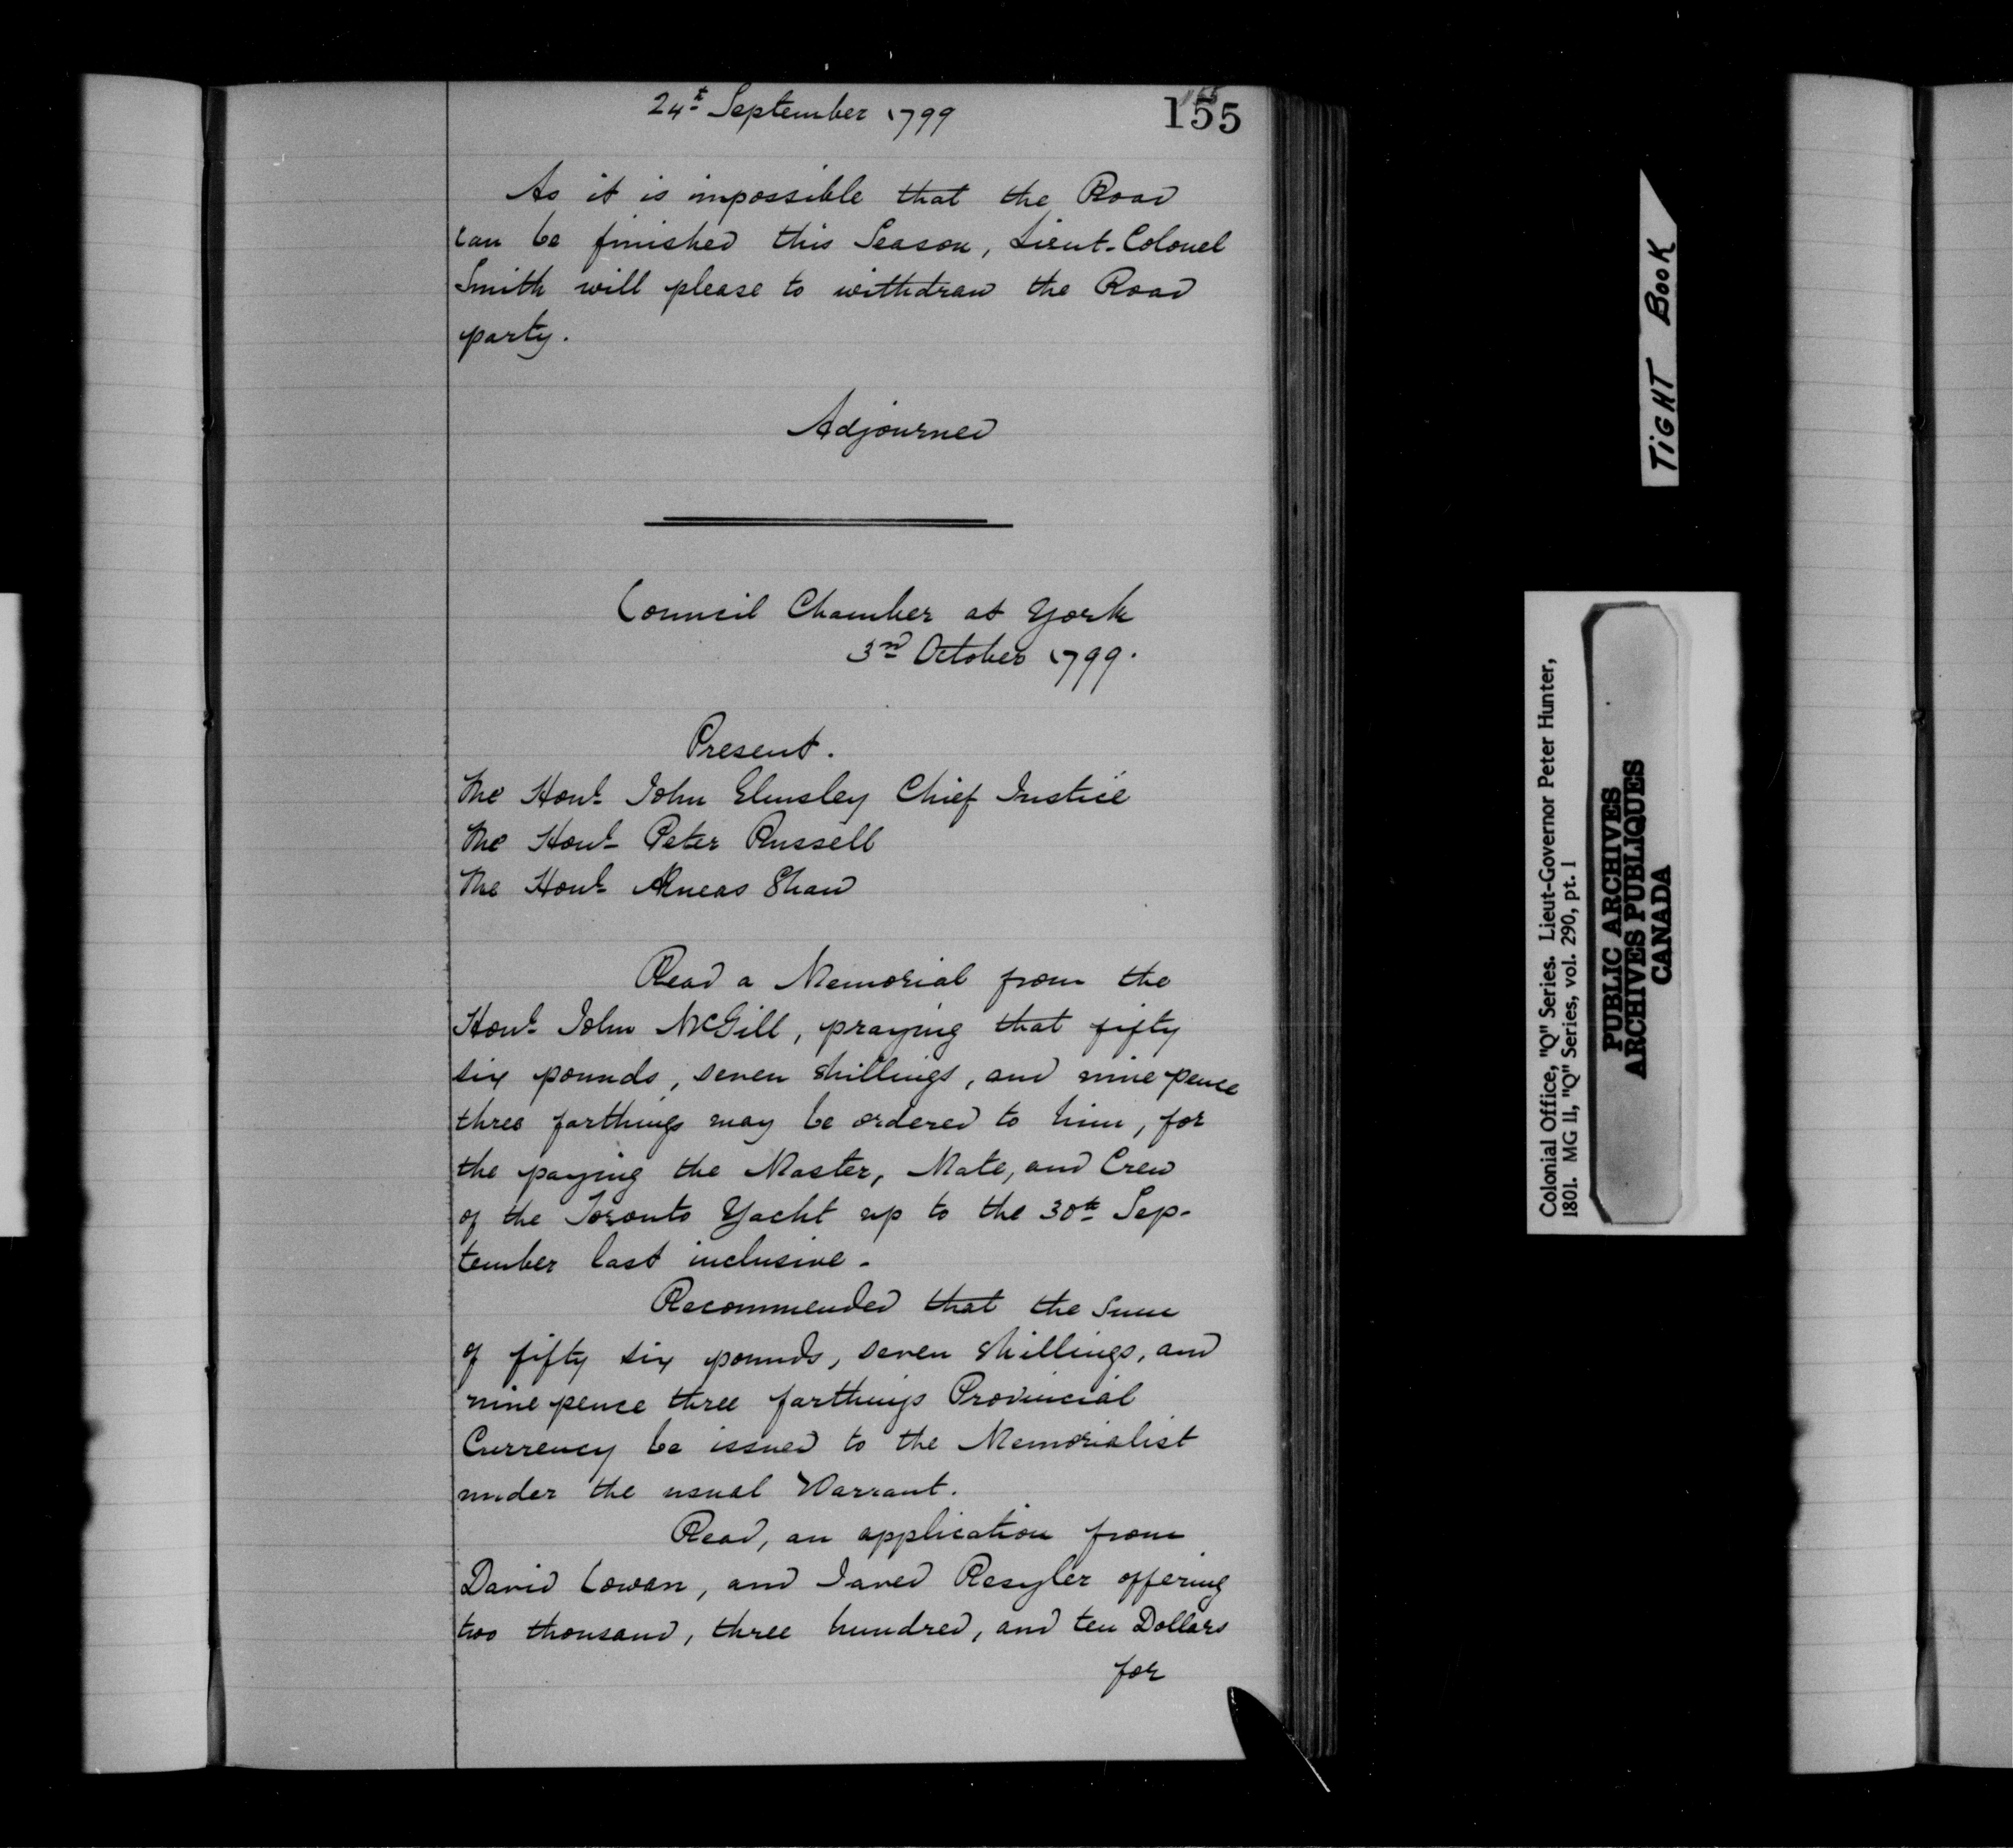 24th September 1799
155
As it is impossible that the Road
can be finished this Season, Lieut-Colonel
Smith will please to withdraw the Road
party.
Adjourned
Council Chamber at York
3rd October 1799.
Present.
The Honl. John Elmsley Chief Justice
The Honl. Peter Russell
The Honl. Æneas Shaw
Read a Memorial from the
Honl. John McGill, praying that fifty
six pounds, seven shillings, and nine pence
three farthings may be ordered to him, for
the paying the Master, Mate, and Crew
of the Toronto Yacht up to the 30th Sep-
tember last inclusive.
Recommended that the sum
of fifty six pounds, seven shillings, and
nine pence three farthings Provincial
Currency be issued to the Memorialist
under the usual Warrant.
Read, an application from
David Cowan, and Jared offering
two thousand, three hundred, and ten Dollars
for
TIGHT BOOK
Colonial Office, "Q" Series. Lieut-Governor Peter Hunter,
1801. MG 11, "Q" Series, vol. 290, pt. 1
PUBLIC ARCHIVES
ARCHIVES PUBLIQUES
CANADA